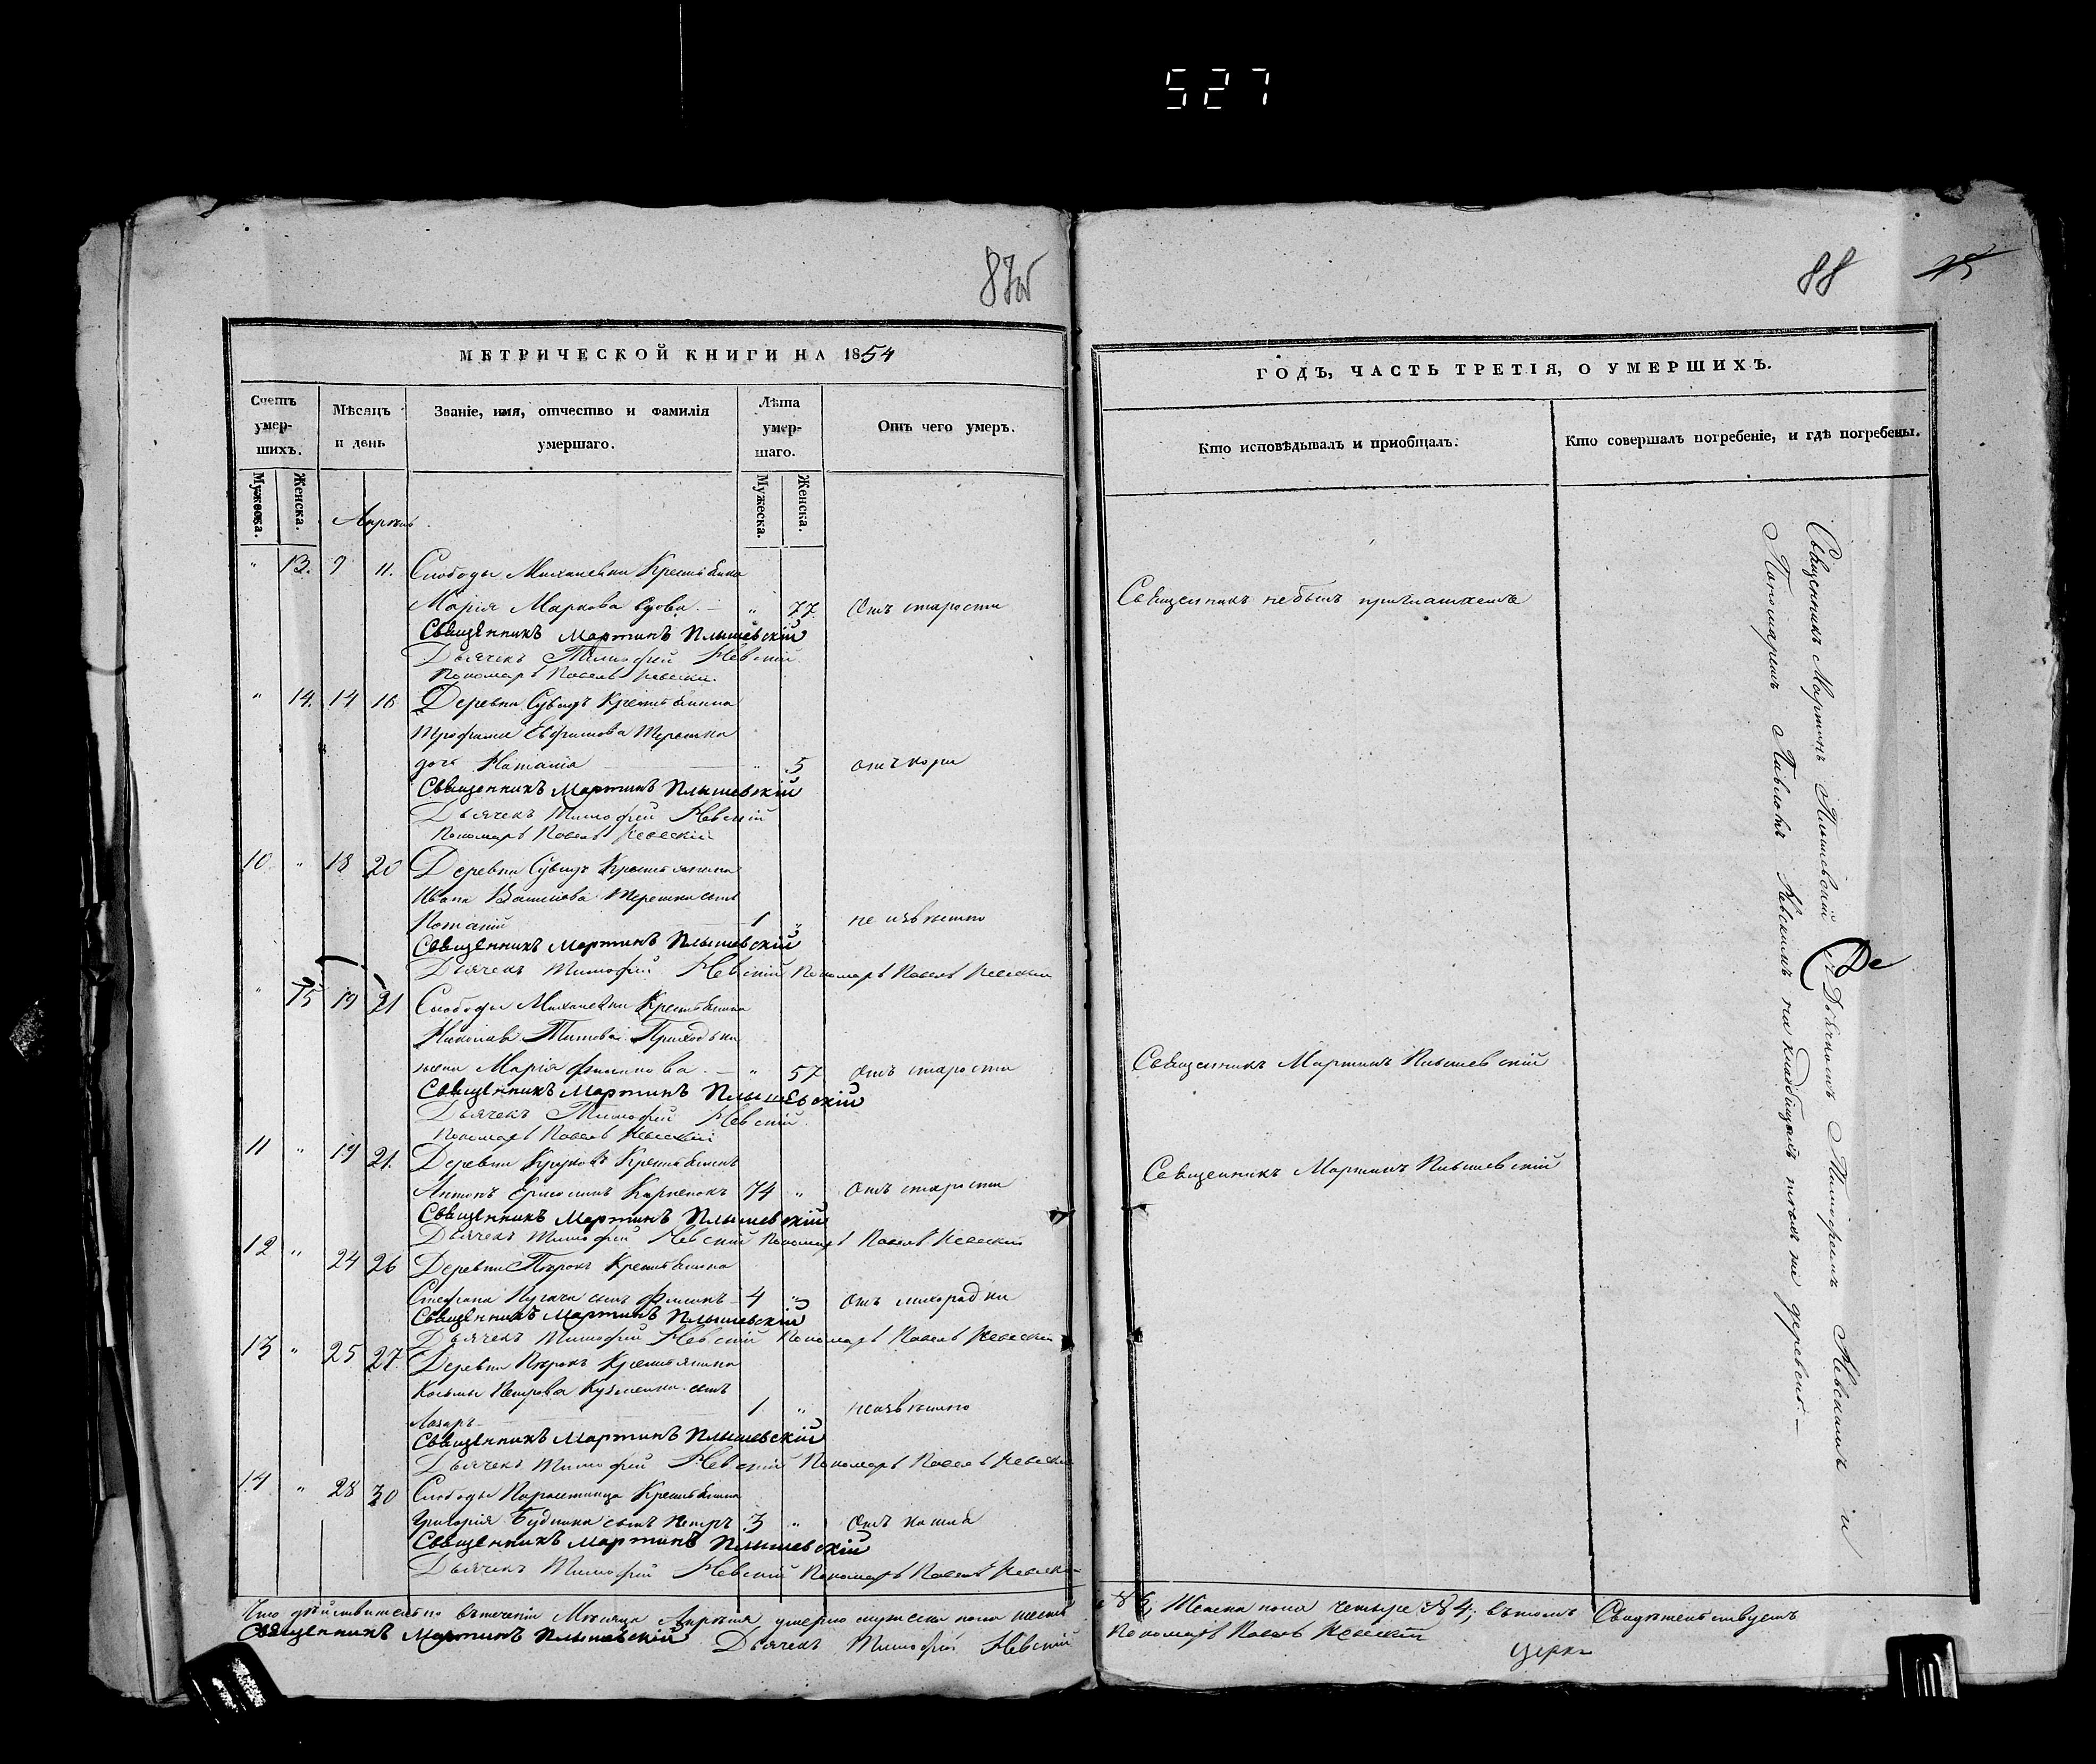 527
87об
МЕТРИЧЕСКОЙ КНИГИ НА 1854
Счетъ умерших. Мѣсяцъ и день Званіе, имя, отчество и фамилія умершаго. Лѣта умершаго. Отъ чего умеръ.
Мужеска. Женска. Мужеска. Женска.
Апрѣль
" 13. 9 11. Слободы Михалевки Крестьянка
Марія Маркова вдова. — " 77. Отъ старости
Священникъ Мартинъ Плышевскій
Дьячекъ Тимофей Невскій
Пономарь Павелъ Невскій
" 14. 14 16 Деревни Крестьянина
Трофима Ефимова Терешка
дочь Наталія " 5 отъ кори
Священникъ Мартинъ Плышевскій
Дьячекъ Тимофей Невскій
Пономарь Павелъ Невскій
10 " 18 20 Деревни Крестьянина
Ивана Терешки сынъ
1 " не извѣстно
Священникъ Мартинъ Плышевскій
Дьячекъ Тимофей Невскій Пономарь Павелъ Невскій
" 15 19 21 Слободы Михалевки Крестьянина
Николая Титова Приходька
жена Марія Филипова. — " 57 отъ старости
Священникъ Мартинъ Плышевскій
Дьячекъ Тимофей Невскій
Пономарь Павелъ Невскій
11 " 19 21. Деревни Крестьянинъ
Антонъ Карпенокъ 74 " Отъ старости
Священникъ Мартинъ Плышевскій
Дьячекъ Тимофей Невскій Пономарь Павелъ Невскій
12 " 24 26 Деревни Крестьянина
Стефана Пугача сынъ 4 " Отъ лихорадки
Священникъ Мартинъ Плышевскій
Дьячекъ Тимофей Невскій Пономарь Павелъ Невскій
13 " 25 27. Деревни Крестьянина
Косьмы Петрова Кузменка сынъ
Лазарь 1 " неизвѣстно
Священникъ Мартинъ Плышевскій
Дьячекъ Тимофей Невскій Пономарь Павелъ Невскій
14 " 28 30 Слободы Крестьянина
Григорія Будника сынъ Петръ 3 " Отъ кашля
Священникъ Мартинъ Плышевскій
Дьячекъ Тимофей Невскій Пономарь Павелъ Невскій
Что дѣйствительно втеченіи Мѣсяца Апрѣля умерло мужеска пола шесть
Священникъ Мартинъ Плышевскій Дьячекъ Тимофей Невскій
88
ГОДЪ, ЧАСТЬ ТРЕТІЯ, О УМЕРШИХЪ.
Кто исповѣдывалъ и приобщалъ. Кто совершалъ погребеніе, и гдѣ погребены.
Священникъ небылъ приглашенъ
Священникъ Мартинъ Плышевскій
Священникъ Мартинъ Плышевскій
Священникъ Мартинъ Плышевскій Дьячкомъ Тимофеемъ Невскимъ и
Пономаремъ Павломъ Невскимъ на кладбищѣ той же деревни. —
№ 6, Женска пола четыре № 4; втомъ Свидѣтельствуетъ
Пономарь Павелъ Невскій
Церк